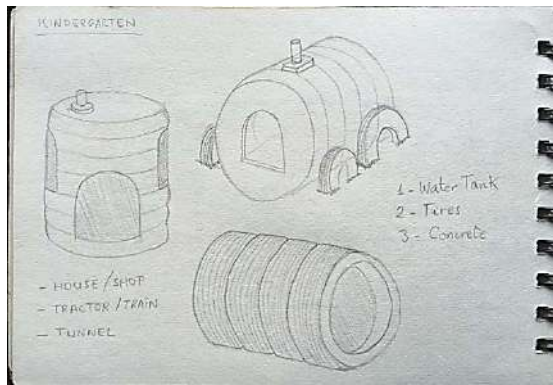 KINDERGARTEN
1 - Water Tank
2 - Tires
3 - Concrete
- HOUSE/SHOP
- TRACTOR/TRAIN
- TUNNEL